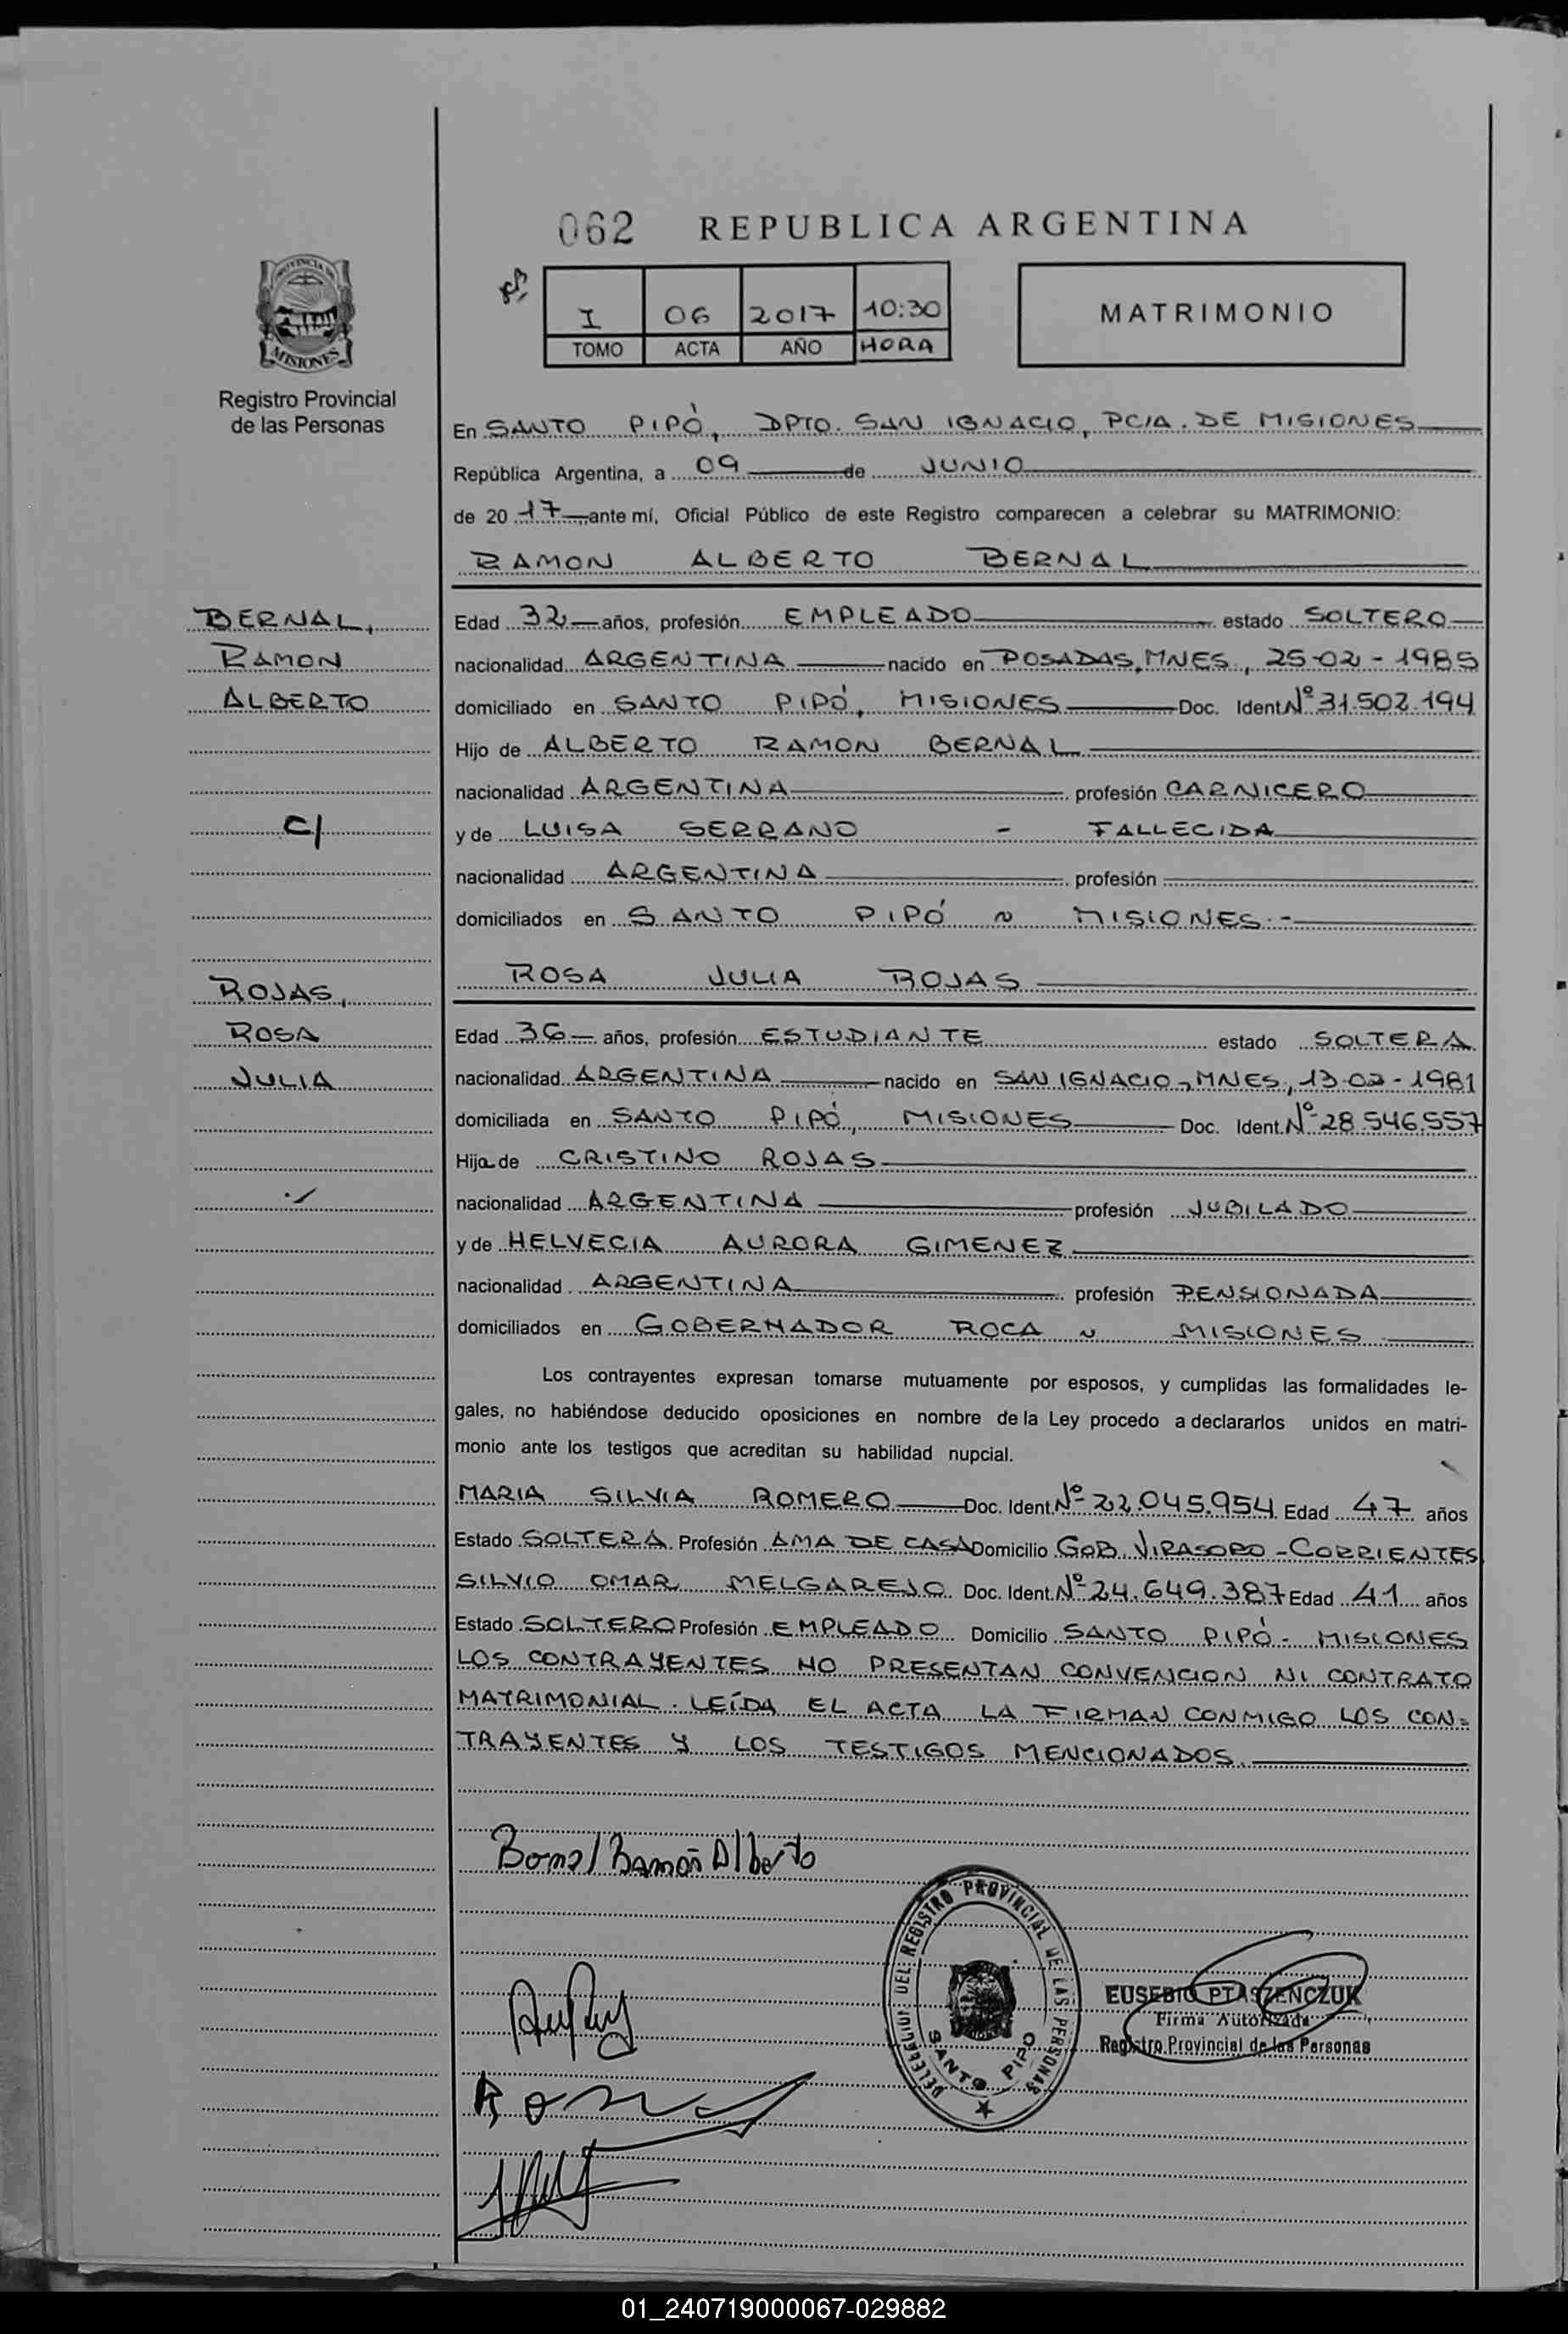 062 REPUBLICA ARGENTINA
PROVINCIA DE
MISIONES
I 06 2017 10:30
TOMO ACTA AÑO HORA
MATRIMONIO
Registro Provincial
de las Personas
En SANTO PIPÓ, DPTO. SAN IGNACIO, PCIA. DE MISIONES
República Argentina, a 09 de JUNIO
de 20 17 ante mí, Oficial Público de este Registro comparecen a celebrar su MATRIMONIO:
RAMON ALBERTO BERNAL
BERNAL,
RAMON
ALBERTO
C/
Edad 32 años, profesión EMPLEADO estado SOLTERO
nacionalidad ARGENTINA nacido en POSADAS, MNES., 25-02-1985
domiciliado en SANTO PIPÓ, MISIONES Doc. Ident. Nº 31.502.194
Hijo de ALBERTO RAMON BERNAL
nacionalidad ARGENTINA profesión CARNICERO
y de LUISA SERRANO - FALLECIDA
nacionalidad ARGENTINA profesión
domiciliados en SANTO PIPÓ ~ MISIONES.-
ROSA JULIA ROJAS
ROJAS,
ROSA
JULIA
Edad 36 años, profesión ESTUDIANTE estado SOLTERA
nacionalidad ARGENTINA nacido en SAN IGNACIO, MNES., 13-02-1981
domiciliada en SANTO PIPÓ, MISIONES Doc. Ident. Nº 28.546.557
Hija de CRISTINO ROJAS
nacionalidad ARGENTINA profesión JUBILADO
y de HELVECIA AURORA GIMENEZ
nacionalidad ARGENTINA profesión PENSIONADA
domiciliados en GOBERNADOR ROCA ~ MISIONES
Los contrayentes expresan tomarse mutuamente por esposos, y cumplidas las formalidades le-
gales, no habiéndose deducido oposiciones en nombre de la Ley procedo a declararlos unidos en matri-
monio ante los testigos que acreditan su habilidad nupcial.
MARIA SILVIA ROMERO Doc. Ident. Nº 22.045.954 Edad 47 años
Estado SOLTERA Profesión AMA DE CASA Domicilio GOB. VIRASORO - CORRIENTES
SILVIO OMAR MELGAREJO Doc. Ident. Nº 24.649.387 Edad 41 años
Estado SOLTERO Profesión EMPLEADO Domicilio SANTO PIPÓ - MISIONES
LOS CONTRAYENTES NO PRESENTAN CONVENCION NI CONTRATO
MATRIMONIAL. LEÍDA EL ACTA LA FIRMAN CONMIGO LOS CON=
TRAYENTES Y LOS TESTIGOS MENCIONADOS.
Bernal Ramon Alberto
DELEGACION DEL REGISTRO PROVINCIAL DE LAS PERSONAS
SANTO PIPO
EUSEBIO PTASZENCZUK
Firma Autorizada
Registro Provincial de las Personas
01_240719000067-029882